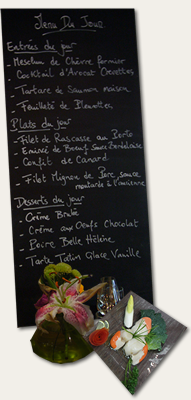 Menu Du Jour
Entrées du jour
- Mesclun de Chèvre fermier
- Cocktail d'Avocat Crevettes
- Tartare de Saumon maison
- Feuilleté de
Plats du jour
- Filet de Rascasse au Pesto
Emincé de Boeuf Sauce Bordelaise
- Confit de Canard
- Filet Mignon de Porc sauce
moutarde à l'ancienne
Desserts du jour
- Crème Brulée
- Crème aux Oeufs Chocolat
- Poire Belle Hélène
- Tarte Tatin Glace Vanille